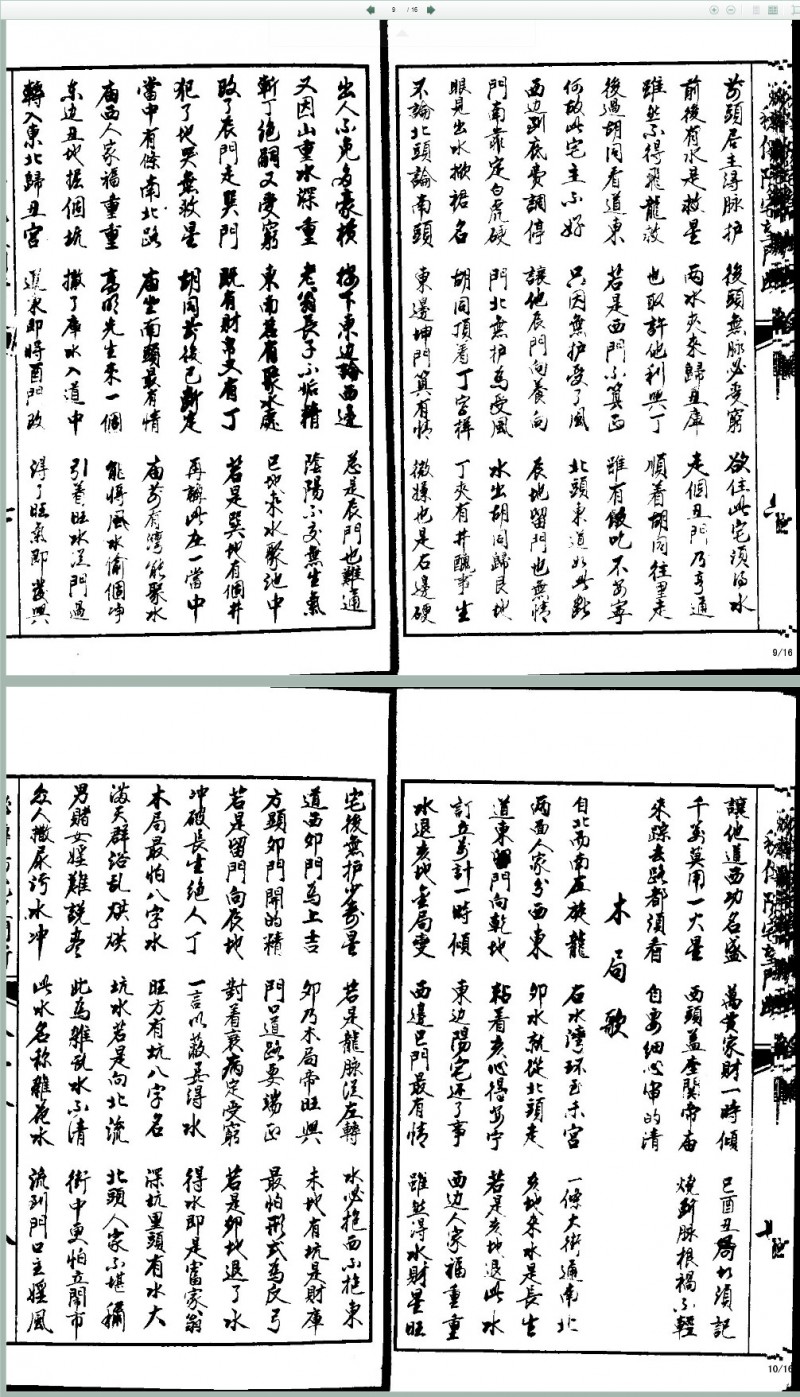 9 / 16
前頭居主得脉护 後頭無脉必受窮 欲住此宅須得水
前後有水是救星 兩水夾來歸丑庫 走個丑門乃亨通
雖然不得飛龍效 也取許他利興丁 順着胡同往里走
後過胡同看道東 若是西門不算正 雖有飯吃不安寧
何故此宅主不好 只因無护受了風 北頭東道如此断
西边到底費調停 讓他辰門向養向 辰地留門也無情
門南靠定白虎硬 門北無护為受風 水出胡同歸艮地
眼見出水掀裙名 胡同頂着丁字样 丁夾有井醜事生
不論北頭論南頭 東邊坤門算有情 微嫌也是右邊硬
9/16
出人不免多豪横 接下東边論西邊 总是辰門也難通
又因山重水深重 老翁長子不垢精 陰陽不交無生氣
斬丁绝嗣又受窮 東南若有聚水處 巳地来水聚池中
改了辰門走巽門 既有財帛又有丁 若是巽地有個井
犯了地哭無救星 胡同前後已断走 再論此在一當中
當中有條南北路 庙坐南頭最有情 庙前有灣能聚水
庙西人家福重重 高明先生来一個 能将風水偷個净
东边丑地掘個坑 撒了庫水入道中 引着旺水温門過
轉入東北歸丑宫 道家即将酉門改 得了旺氣即發興
讓他道西功名盛 萬貫家財一時傾 巳酉丑局如須記
千萬莫用一火星 西頭盖座關帝庙 燒斬脉根禍不輕
來踪去路都須看 自要細心审的清
木局歌
自北而南左旋龍 右水灣环至未宮 一條大街通南北
兩面人家分西東 卯水就從北頭走 亥地来水是長生
道東留門向乾地 粘着亥心得安宁 若是亥地退此水
訂立萬計一時傾 東边陽宅还了事 西边人家福重重
水退亥地全局变 西邊巳門最有情 雖然得水財星旺
10/16
宅後無护少壽星 若是龍脉從左轉 水必抱西不抱東
道西卯門為上吉 卯乃木局帝旺興 未地有坑是財庫
方顕卯門開的精 門口道路要端正 最怕形式為反弓
若是留門向辰地 對着衰病定受窮 若是卯地退了水
冲破長生绝人丁 一言以蔽莫得水 得水即是富家翁
木局最怕八字水 旺方有坑八字名 深坑里頭有水大
滿天群浴乱烘烘 坑水若是向北流 北頭人家不堪穪
男賭女婬難說尽 此為雜乱水不清 街中更怕立閙市
众人撒尿污水冲 此水名称雜花水 流到門口主婬風